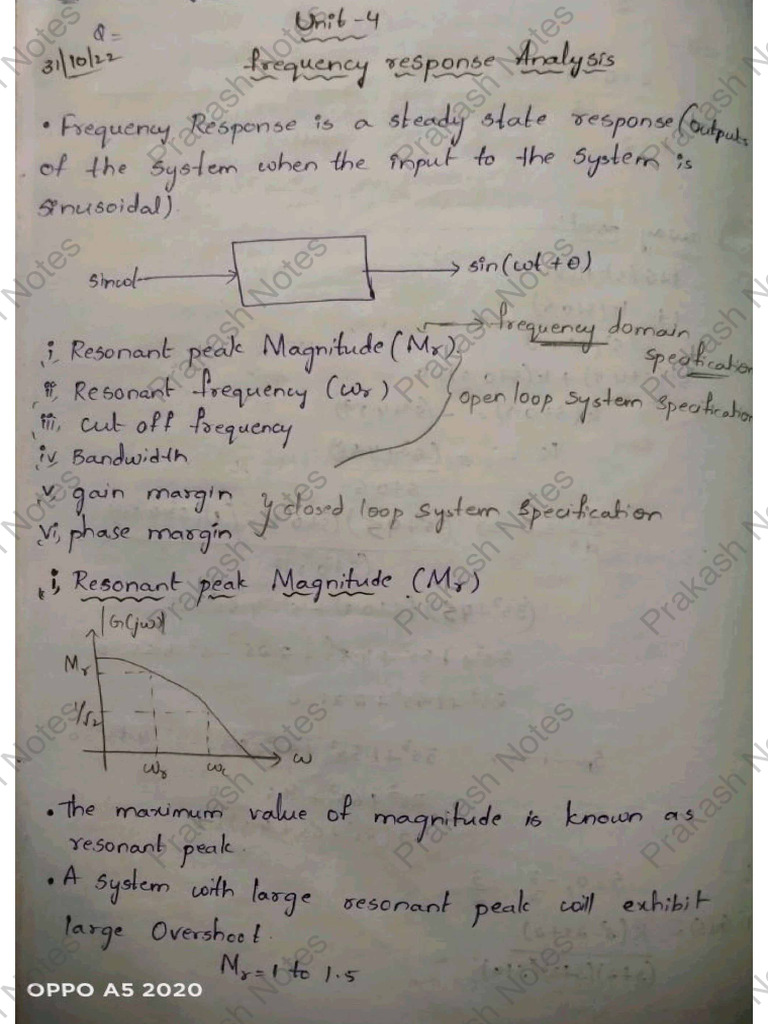 Unit-4
Q=
31/10/22
frequency response Analysis
• Frequency Response is a steady state response (outputs
of the system when the input to the system is
sinusoidal).
sinωt
sin(ωt+θ)
i, Resonant peak Magnitude (Mr).
frequency domain
specification
ii, Resonant frequency (ωr)
open loop system specification
iii, cut off frequency
iv, Bandwidth
v, gain margin
} closed loop system specification
vi, phase margin
i, Resonant peak Magnitude (Mr)
|G(jω)|
Mr
1/√2
ωr
ωc
ω
• The maximum value of magnitude is known as
resonant peak.
• A system with large resonant peak will exhibit
large Overshoot.
Mr = 1 to 1.5
OPPO A5 2020
Prakash Notes